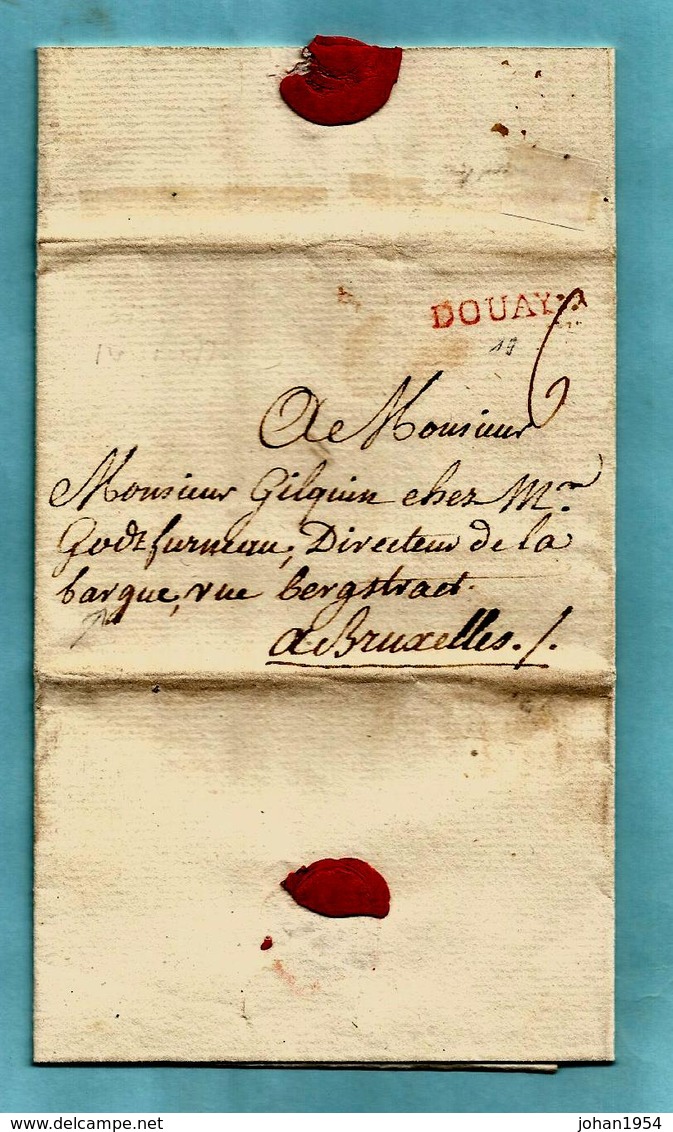 DOUAY
6
19
A Monsieur
Monsieur Gilquin chez Mr.
Godtfurneau, Directeur de la
barque, rue bergstraet.
a Bruxelles./.
www.delcampe.net
johan1954